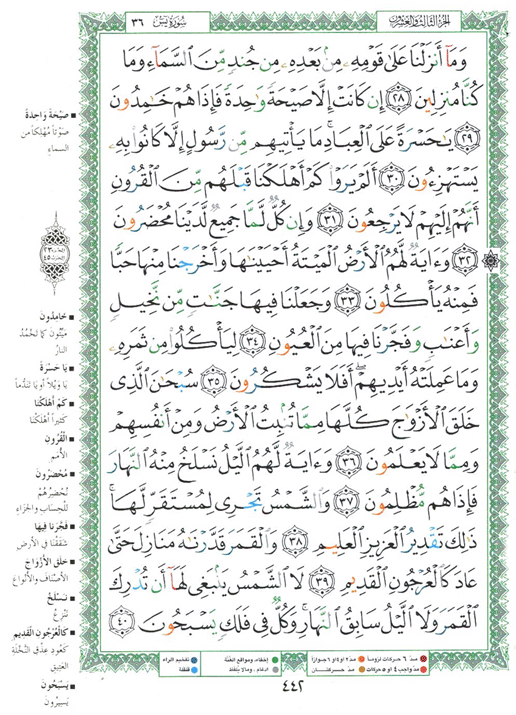 الجزء الثالث والعشرون
سورة يس ٣٦
وَمَآ أَنزَلْنَا عَلَىٰ قَوْمِهِۦ مِنۢ بَعْدِهِۦ مِن جُندٍ مِّنَ ٱلسَّمَآءِ وَمَا
كُنَّا مُنزِلِينَ ﴿٢٨﴾ إِن كَانَتْ إِلَّا صَيْحَةً وَٰحِدَةً فَإِذَا هُمْ خَٰمِدُونَ
﴿٢٩﴾ يَٰحَسْرَةً عَلَى ٱلْعِبَادِ ۚ مَا يَأْتِيهِم مِّن رَّسُولٍ إِلَّا كَانُوا۟ بِهِۦ
يَسْتَهْزِءُونَ ﴿٣٠﴾ أَلَمْ يَرَوْا۟ كَمْ أَهْلَكْنَا قَبْلَهُم مِّنَ ٱلْقُرُونِ
أَنَّهُمْ إِلَيْهِمْ لَا يَرْجِعُونَ ﴿٣١﴾ وَإِن كُلٌّ لَّمَّا جَمِيعٌ لَّدَيْنَا مُحْضَرُونَ
﴿٣٢﴾ وَءَايَةٌ لَّهُمُ ٱلْأَرْضُ ٱلْمَيْتَةُ أَحْيَيْنَٰهَا وَأَخْرَجْنَا مِنْهَا حَبًّا
فَمِنْهُ يَأْكُلُونَ ﴿٣٣﴾ وَجَعَلْنَا فِيهَا جَنَّٰتٍ مِّن نَّخِيلٍ
وَأَعْنَٰبٍ وَفَجَّرْنَا فِيهَا مِنَ ٱلْعُيُونِ ﴿٣٤﴾ لِيَأْكُلُوا۟ مِن ثَمَرِهِۦ
وَمَا عَمِلَتْهُ أَيْدِيهِمْ ۖ أَفَلَا يَشْكُرُونَ ﴿٣٥﴾ سُبْحَٰنَ ٱلَّذِى
خَلَقَ ٱلْأَزْوَٰجَ كُلَّهَا مِمَّا تُنۢبِتُ ٱلْأَرْضُ وَمِنْ أَنفُسِهِمْ
وَمِمَّا لَا يَعْلَمُونَ ﴿٣٦﴾ وَءَايَةٌ لَّهُمُ ٱلَّيْلُ نَسْلَخُ مِنْهُ ٱلنَّهَارَ
فَإِذَا هُم مُّظْلِمُونَ ﴿٣٧﴾ وَٱلشَّمْسُ تَجْرِى لِمُسْتَقَرٍّ لَّهَا ۚ
ذَٰلِكَ تَقْدِيرُ ٱلْعَزِيزِ ٱلْعَلِيمِ ﴿٣٨﴾ وَٱلْقَمَرَ قَدَّرْنَٰهُ مَنَازِلَ حَتَّىٰ
عَادَ كَٱلْعُرْجُونِ ٱلْقَدِيمِ ﴿٣٩﴾ لَا ٱلشَّمْسُ يَنۢبَغِى لَهَآ أَن تُدْرِكَ
ٱلْقَمَرَ وَلَا ٱلَّيْلُ سَابِقُ ٱلنَّهَارِ ۚ وَكُلٌّ فِى فَلَكٍ يَسْبَحُونَ ﴿٤٠﴾
صَيْحَةً وَاحِدَةً
صَوْتاً مُهْلِكاً من
السماء
خامدون
مَيِّتُونَ كما تَخْمُدُ
النارُ
يَا حَسْرَةً
يَا وَيْلاً أو يَا تَنَدُّماً
كَمْ أَهْلَكْنَا
كثيراً أهْلَكْنا
القُرُون
الأُمَم
مُحْضَرُونَ
نُحْضِرُهُمْ
للحِسابِ والجزاء
فَجَّرْنا فِيهَا
شَقَقْنَا في الأرْضِ
خَلَقَ الأَزْوَاجَ
الأصْنافَ والأنْواعَ
نَسْلَخُ
نَنْزِعُ
كالعُرْجُونِ القَدِيم
كَعُودِ عِذْقِ النَّخْلَةِ
العَتِيق
يَسْبَحُونَ
يَسيرُونَ
مد ٦ حركات لزوماً
مد ٢ أو ٤ أو ٦ جوازاً
إخفاء، ومواقع الغُنَّة
تفخيم الراء
مد واجب ٤ أو ٥ حركات
مد حركتان
إدغام، وما لا يُلفظ
قلقلة
٤٤٢